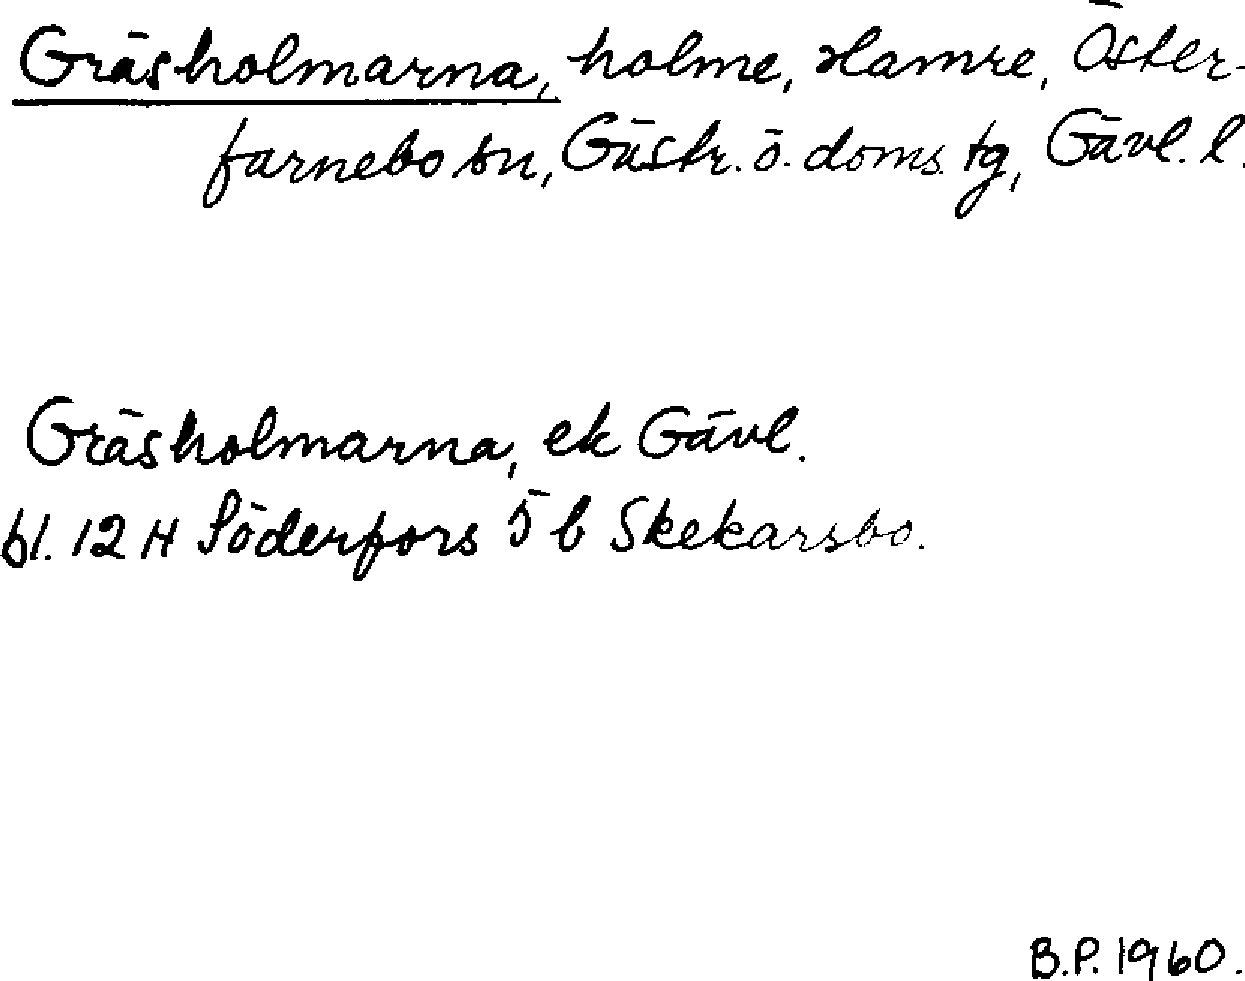 Gräsholmarna, holme, Hamre, Öster-
farnebo sn, Gästr. ö. doms. tg, Gävl. l.
Gräsholmarna, ek Gävl.
bl. 12 H Söderfors 5 b Skekarsbo.
B.P. 1960.